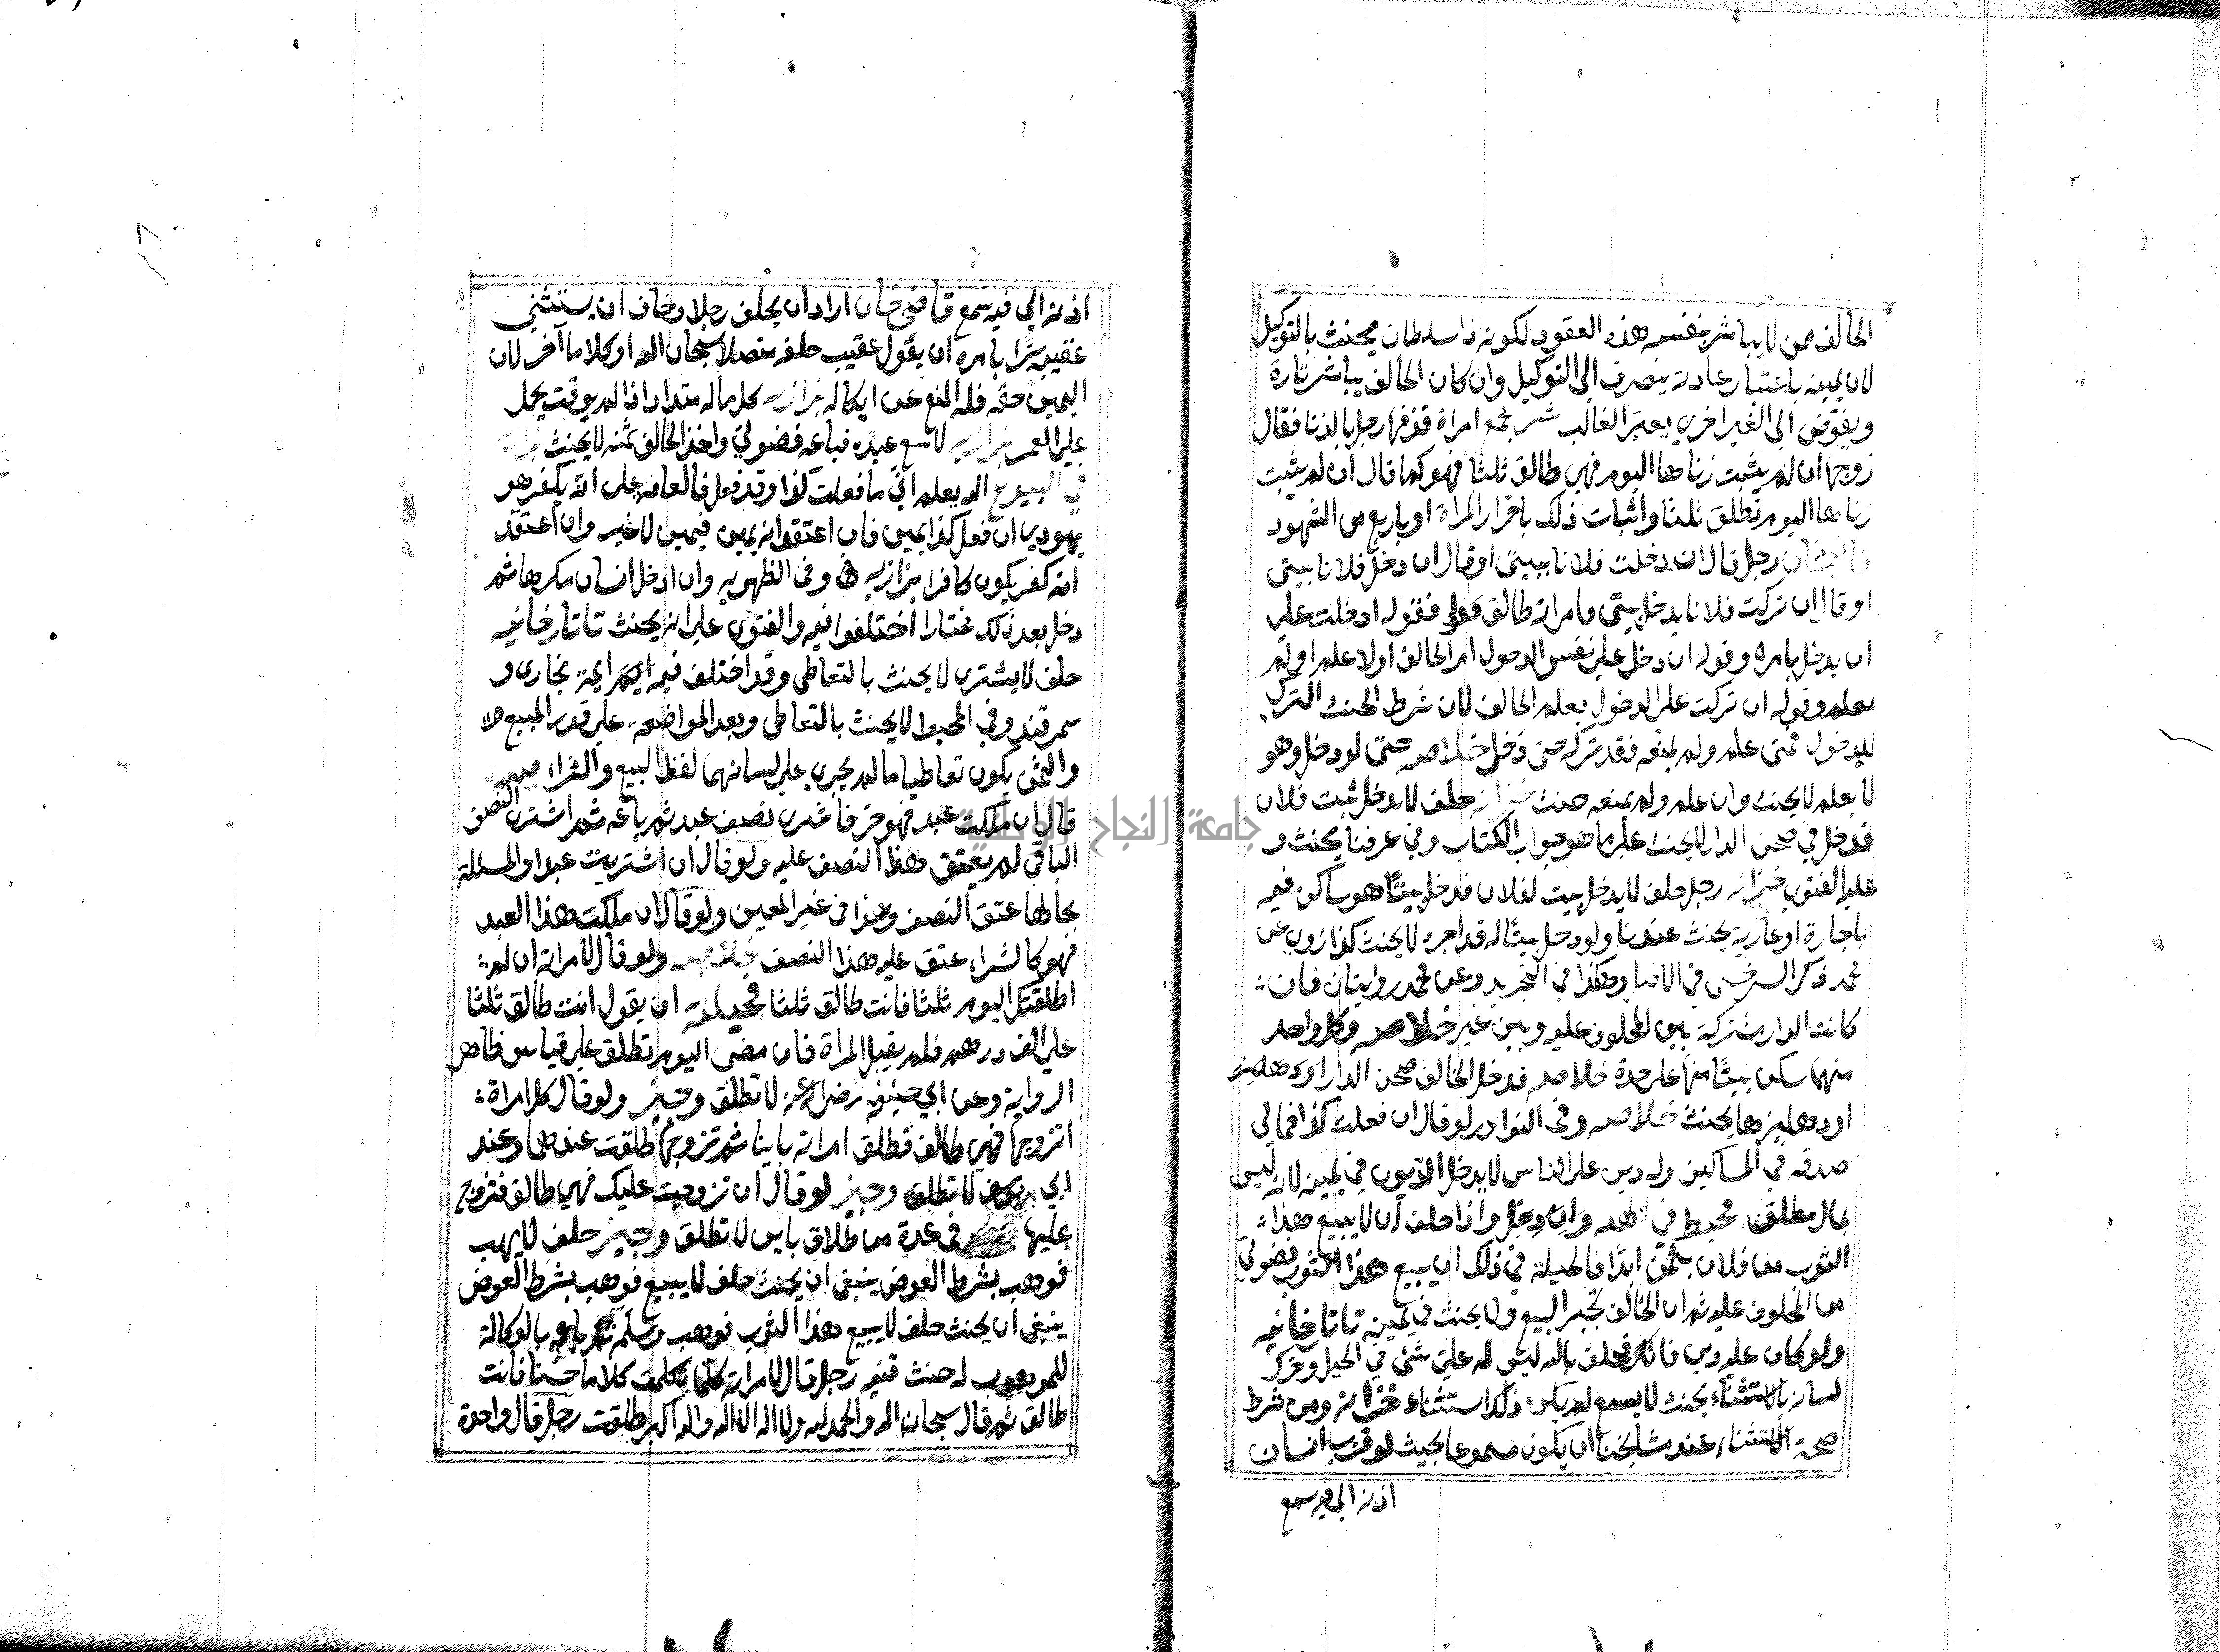 الحالف ممن لا يباشر بنفسه هذه العقود لكونه ذا سلطان يحنث بالتوكيل
لان يمينه باعتبار عادته ينصرف الى التوكيل وان كان الحالف يباشر تارة
ويفوض الى الغير اخرى يعتبر الغالب شرح مجمع امراة قذفها رجل بالزنا فقال
زوجها ان لم يثبت زناها اليوم فهي طالق ثلثا فهو كما قال ان لم يثبت
زناها اليوم تطلق ثلثا واثبات ذلك باقرار المراة او باربع من الشهود
قاضيخان رجل قال ان دخلت فلانا بيتى او قال ان دخل فلانا بيتى
او قال ان تركت فلانا يدخل بيتى فامراته طالق فقوله ادخلت على
ان يدخل بامره وقوله ان دخل على نفس الدخول امر الحالف او لا علم او لم
يعلم وقوله ان تركت على الدخول بعلم الحالف لان شرط الحنث الترك
للدخول فمتى علم ولم يمنعه فقد تركه حتى دخل خلاصه حتى لو دخل وهو
لا يعلم لا يحنث وان علم ولم يمنعه حنث خزانه حلف لا يدخل بيت فلان
فدخل في صحن الدار لا يحنث على ما هو جواب الكتاب وفي عرفنا يحنث و
عليه الفتوى خزانه رجل حلف لا يدخل بيت لفلان فدخل بيتا هو ساكن فيه
باجارة او عارية يحنث عندنا ولو دخل بيتا له قد اجره لا يحنث كذا روى عن
محمد ذكر السرخسى في الاصل وهكذا في التجريد وعن محمد روايتان فان
كانت الدار مشتركة بين المحلوف عليه وبين غيره خلاصه وكل واحد
منهما سكن بيتا منها على حدة خلاصه فدخل الحالف صحن الدار
او دهليزها يحنث خلاصه وفى النوادر لو قال ان فعلت كذا فمالى
صدقه في المساكين وله دين على الناس لا يدخل الديون في يمينه لانه ليس
بمال مطلق محيط واذا حلف ان لا يبيع هذا
الثوب من فلان بثمن ابدا فالحيلة في ذلك ان يبيع هذا الثوب فضولي
من المحلوف عليه ثم ان الحالف يجيز البيع ولا يحنث في يمينه تاتارخانيه
ولو كان عليه دين فانكر فحلف بالله ليس له على شئ في الحيل وحرك
لسانه بالاستثناء بحيث لا يسمع لم يكن ذلك استثناء خزانه ومن شرط
صحة الاستثناء عند مشايخنا ان يكون مسموعا بحيث لو قرب انسان
اذنه الى فيه سمع
اذنه الى فيه سمع قاضى خان اراد ان يحلف رجلا وخاف ان يستثنى
عقيبه سرا يامره ان يقول عقيب حلفه متصلا سبحان الله او كلاما آخر لان
اليمين حقه فله المنع عن ابطاله بزازيه اذا لم يوقت يحمل
على العمر بزازيه لا يبيع عبده فباعه فضولى واخذ الحالف ثمنه لا يحنث بزازيه
في البيوع الله يعلم انى ما فعلت كذا وقد فعل فالعامة على انه يكفر هو
يهودي ان فعل كذا يمين فان اعتقد انه يمين فيمين لا غير وان اعتقد
انه كفر يكون كافرا بزازيه وفى الظهيريه وان ادخل انسان مكرها ثم
دخل بعد ذلك مختارا اختلفوا فيه والفتوى على انه يحنث تاتارخانيه
حلف لا يشترى لا يحنث بالتعاطى وقد اختلف فيه ايمة بخارى و
سمرقند وفي المحيط لا يحنث بالتعاطى وبعد المواضعة على قدر المبيع
والثمن يكون تعاطيا ما لم يجرى على لسانهما لفظ البيع والشراء
قال ان ملكت عبدا فهو حر فاشترى نصف عبد ثم باعه ثم اشترى النصف
الباقى لم يعتق هذا النصف عليه ولو قال ان اشتريت عبدا والمسئلة
بحالها عتق النصف وهذا في غير المعين ولو قال ان ملكت هذا العبد
فهو كالشراء عتق عليه هذا النصف خلاصه ولو قال لامراته ان لم
اطلقتك اليوم ثلثا فانت طالق ثلثا فحيلته ان يقول انت طالق ثلثا
على الف درهم فلم يقبل المراة فان مضى اليوم تطلق على قياس ظاهر
الرواية وعن ابي حنيفه رضى الله عنه لا تطلق وجيز ولو قال كل امراة
اتزوجها فهي طالق فطلق امراته باينا ثم تزوجها طلقت عندهما وعند
ابي يوسف لا تطلق وجيز لو قال ان تزوجت عليك فهي طالق فتزوج
عليها في عدة من طلاق باين لا تطلق وجيز حلف لا يهب
فوهب بشرط العوض ينبغى ان يحنث حلف لا يبيع فوهب بشرط العوض
ينبغى ان يحنث حلف لا يبيع هذا الثوب فوهب وسلم ثم باعه بالوكالة
للموهوب له حنث قنيه رجل قال لامراته كلما تكلمت كلاما حسنا فانت
طالق ثم قال سبحان الله والحمد لله ولا اله الا الله والله اكبر طلقت رجل قال واحدة
جامعة النجاح الوطنية